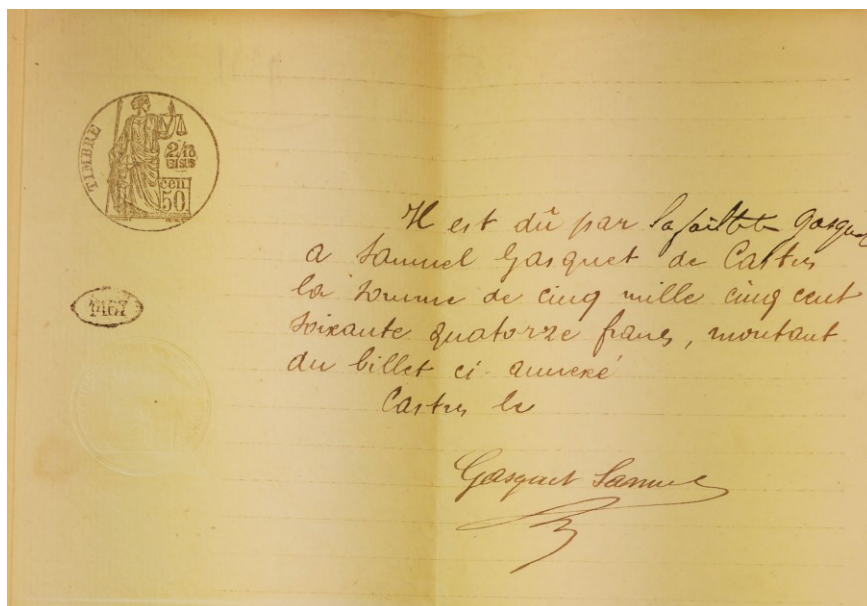 TIMBRE
2/10
EN SUS
cen.
50
Il est dû par la faillite Gasquet
a Samuel Gasquet de Castres
la somme de cinq mille cinq cent
soixante quatorze francs, montant
du billet ci annexé
Castres le
Gasquet Samuel